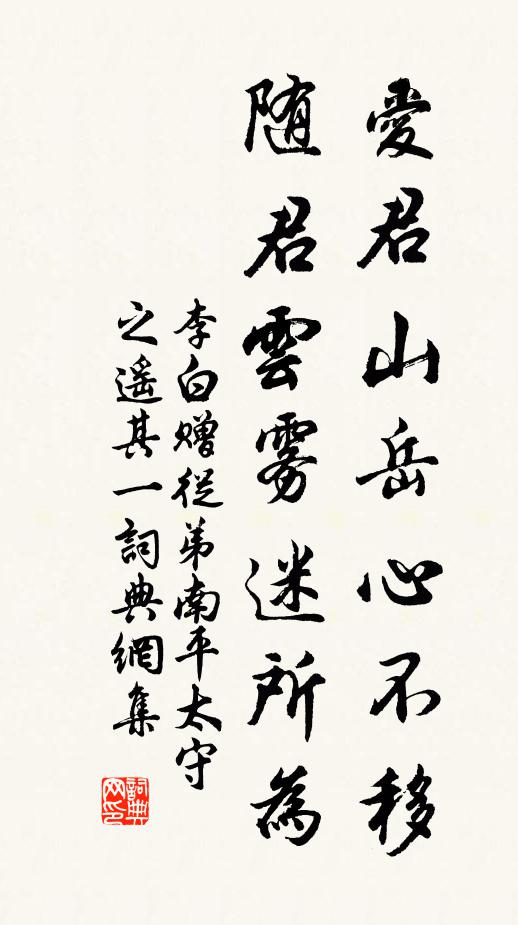 愛君山岳心不移
随君雲雾迷所為
李白赠從弟南平太守
之遥其一詞典網集
詞典
网印